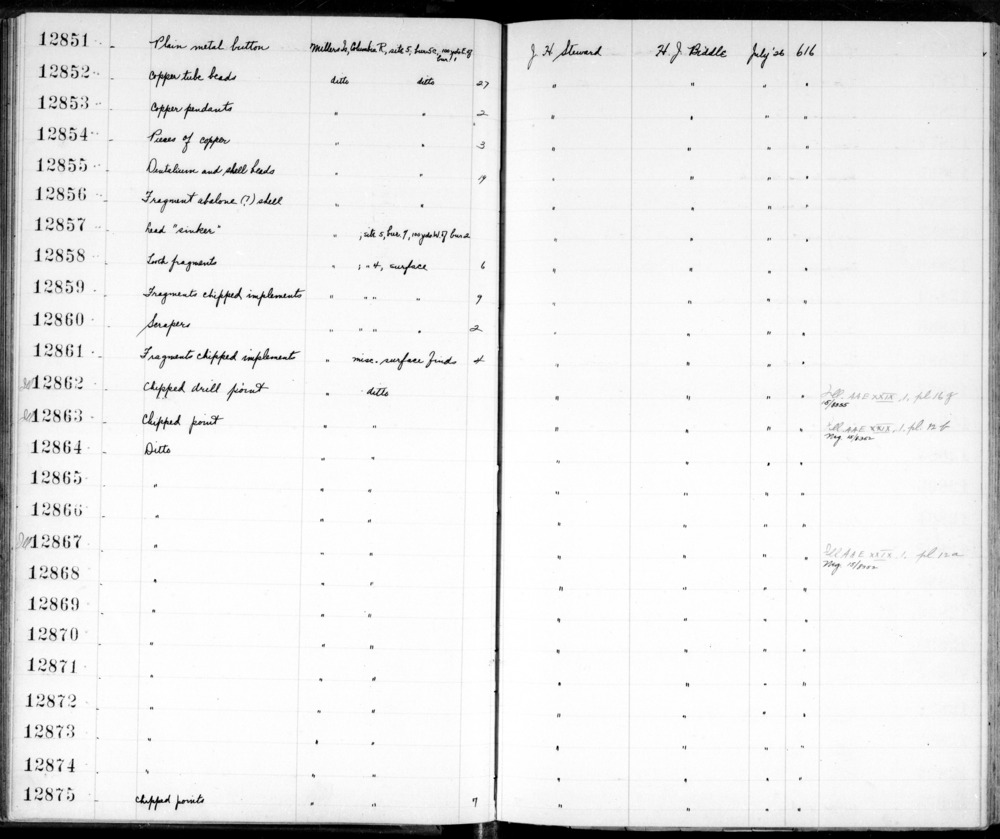 12851 Plain metal button Millers Is, Columbia R, site 5, bur. 5c, 100 yds E of bur. 1 J H Steward H. J. Biddle July '26 616
12852 Copper tube beads ditto ditto 27 " " " "
12853 Copper pendants " " 2 " " " "
12854 Pieces of copper " " 3 " " " "
12855 Dentalium and shell beads " " 19 " " " "
12856 Fragment abalone (?) shell " " " " " "
12857 Lead "sinker" " , site 5, bur. 7, 100 yds W. of bur. 2 " " " "
12858 Tooth fragments " , " 4, surface 6 " " " "
12859 Fragments chipped implements " " " " 9 " " " "
12860 Scrapers " " " " 2 " " " "
12861 Fragments chipped implements " misc. surface finds 4 " " " "
12862 Chipped drill point " ditto " " " " Ill. AAE XXIX, 1, pl. 16 g
12863 Chipped point " " " " " " Ill. AAE XXIX, 1, pl. 12 b
Neg.
12864 Ditto " " " " " "
12865 " " " " " " "
12866 " " " " " " "
12867 " " " " " " " Ill AAE XXIX, 1. pl. 12a
Neg.
12868 " " " " " " "
12869 " " " " " " "
12870 " " " " " " "
12871 " " " " " " "
12872 " " " " " " "
12873 " " " " " " "
12874 " " " " " " "
12875 Chipped points " " 7 " " " "